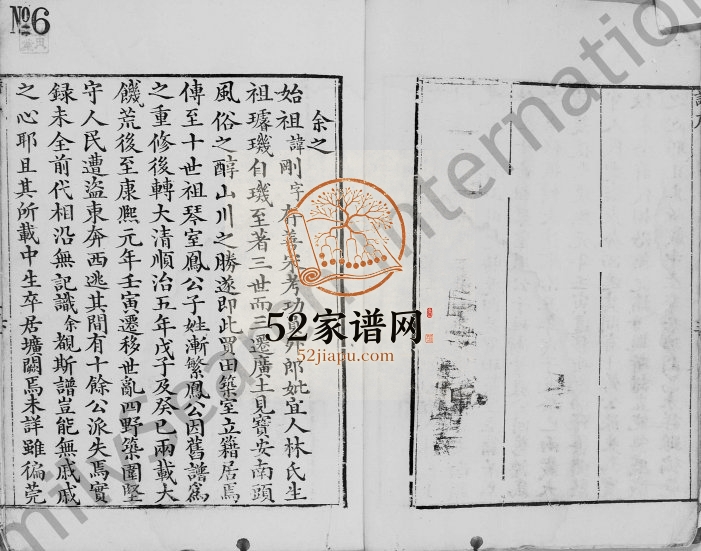 №6
余之
始祖諱剛字
善宋考功
郎妣宜人林氏生
祖璿璣自璣至著三世而三遷廣土見寶安南頭
風俗之醇山川之勝遂即此買田築室立籍居焉
傳至十世祖琴室鳳公子姓漸繁鳳公因舊譜為
之重修後轉大清順治五年戊子及癸巳兩載大
饑荒後至康熙元年壬寅遷移世亂四野築圍堅
守人民遭盜東奔西逃其間有十餘公派失焉實
録未全前代相沿無記識余覩斯譜豈能無戚戚
之心耶且其所載中生卒居壙闕焉未詳雖徧莞
52家谱网
52jiapu.com
FamilySearch International